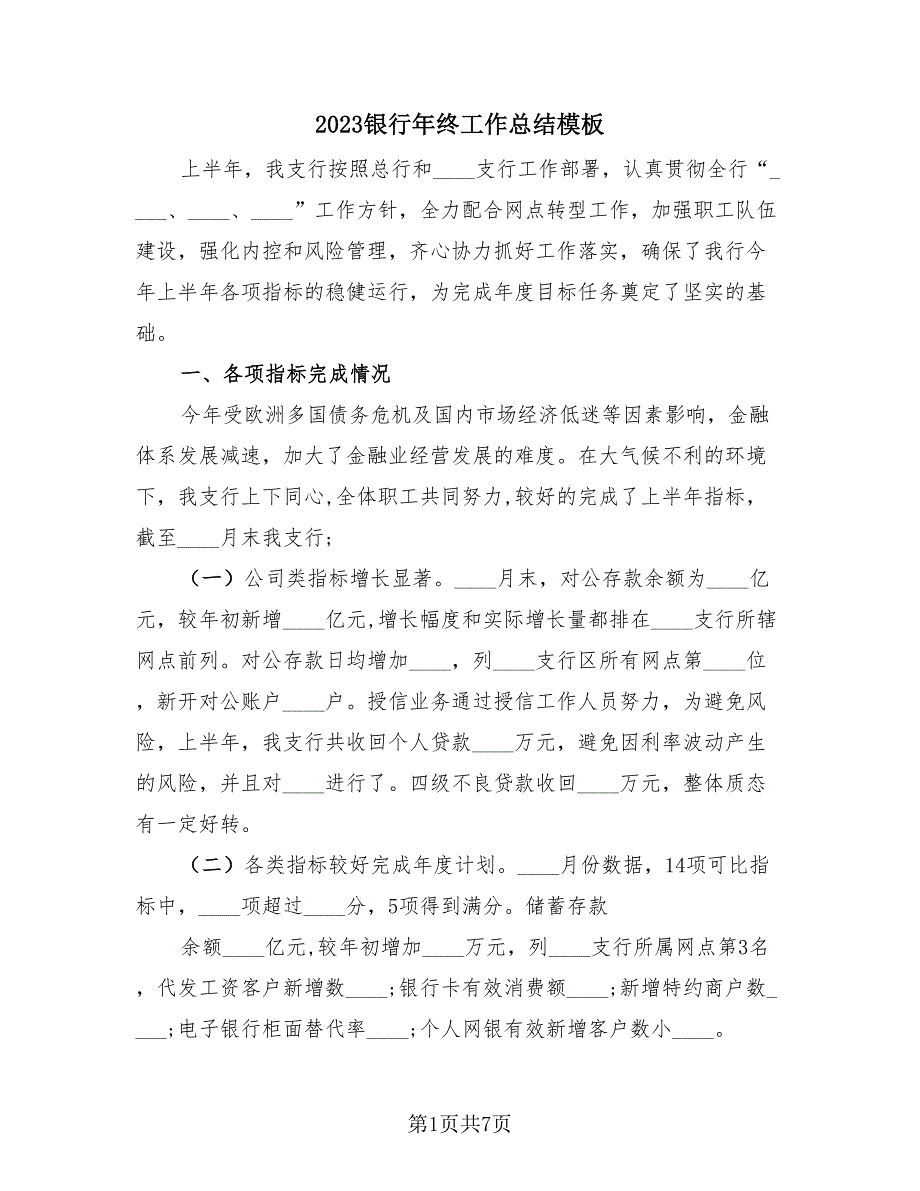 2023银行年终工作总结模板
上半年，我支行按照总行和____支行工作部署，认真贯彻全行“_
___、____、____”工作方针，全力配合网点转型工作，加强职工队伍
建设，强化内控和风险管理，齐心协力抓好工作落实，确保了我行今
年上半年各项指标的稳健运行，为完成年度目标任务奠定了坚实的基
础。
一、各项指标完成情况
今年受欧洲多国债务危机及国内市场经济低迷等因素影响，金融
体系发展减速，加大了金融业经营发展的难度。在大气候不利的环境
下，我支行上下同心,全体职工共同努力,较好的完成了上半年指标，
截至____月末我支行;
（一）公司类指标增长显著。____月末，对公存款余额为____亿
元，较年初新增____亿元,增长幅度和实际增长量都排在____支行所辖
网点前列。对公存款日均增加____，列____支行区所有网点第____位
，新开对公账户____户。授信业务通过授信工作人员努力，为避免风
险，上半年，我支行共收回个人贷款____万元，避免因利率波动产生
的风险，并且对____进行了。四级不良贷款收回____万元，整体质态
有一定好转。
（二）各类指标较好完成年度计划。____月份数据，14项可比指
标中，____项超过____分，5项得到满分。储蓄存款
余额____亿元,较年初增加____万元，列____支行所属网点第3名
，代发工资客户新增数____;银行卡有效消费额____;新增特约商户数_
___;电子银行柜面替代率____;个人网银有效新增客户数小____。
第1页共7页